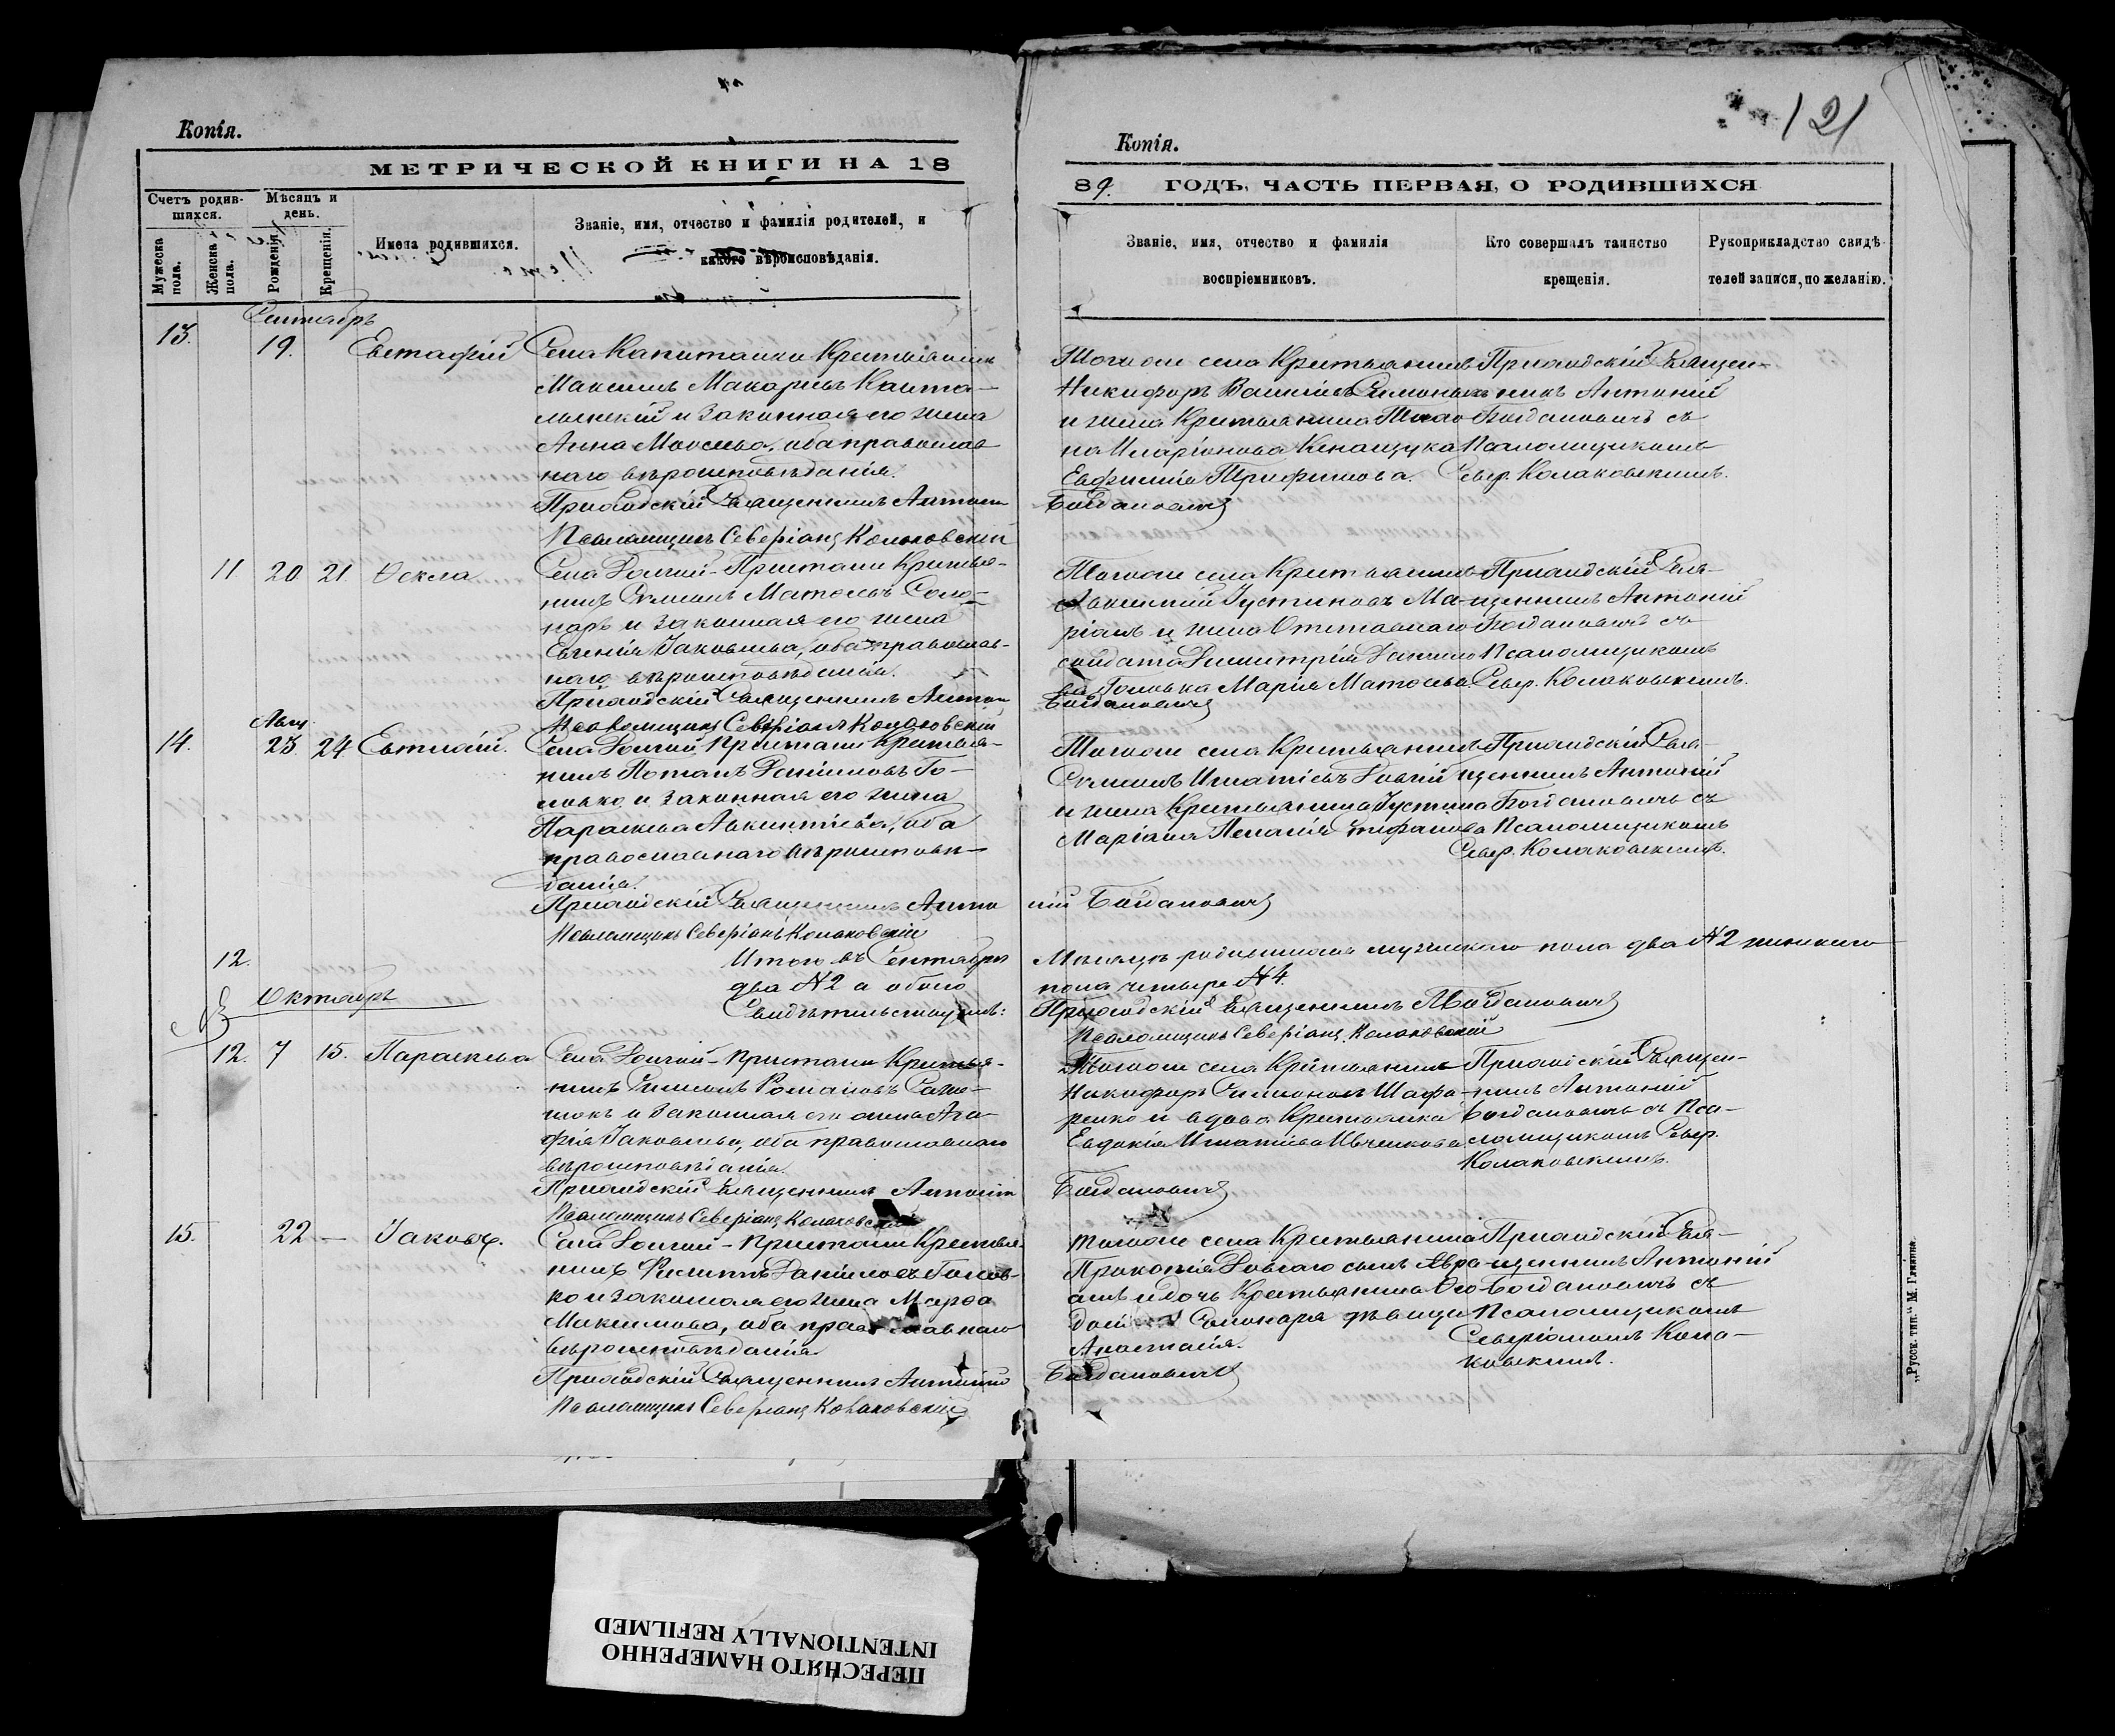 Копія.
МЕТРИЧЕСКОЙ КНИГИ НА 18
Счетъ родив-
шихся.
Мѣсяцъ и
день.
Мужеска
пола.
Женска
пола.
Рожденія.
Крещенія.
Имена родившихся.
Званіе, имя, отчество и фамилія родителей, и
какого вѣроисповѣданія.
Сентябрь
13. 19. Евстафій
Села Капитанки Крестьянинъ
Максимъ Макаріевъ
и законная его жена
Анна Моисеева, оба православ
наго вѣроисповѣданія.
Приходскій Священникъ Антоній
Псаломщикъ Северіанъ Колаковскій
11 20 21 Ѳекла
Села Долгой-Пристани Крестья-
нинъ Матвеевъ Соло-
наръ и законная его жена
Евгенія Яковлева, оба православ-
наго вѣроисповѣданія.
Приходскій Священникъ Антон
Псаломщикъ Северіанъ Колаковскій
14. 23. 24 Евтихій.
Села Долгой Пристани Крестья-
нинъ Потапъ Даніиловъ Го-
ловко и законная его жена
Параскева Авксентіева, оба
православнаго вѣроисповѣ-
данія.
Приходскій Священникъ Анто
Псаломщикъ Северіанъ Колаковскій
12. Итого въ Сентябрѣ
два №2 а обоего
Свидѣтельствуемъ:
Октябрь
12. 7 15. Параскева
Села Долгой-Пристани Крестья-
нинъ Симеонъ Романовъ
и законная его жена Ага-
фія Яковлева, оба православнаго
вѣроисповѣданія.
Приходскій Священникъ Антоній
Псаломщикъ Северіанъ Колаковскій
15. 22 — Іаковъ.
Села Долгой-Пристани Крестья-
нинъ Филиппъ Даніиловъ Голов-
ко и законная его жена Марѳа
Максимова, оба православнаго
вѣроисповѣданія.
Приходскій Священникъ Антоній
Псаломщикъ Северіанъ Колаковскій
121
Копія.
89. ГОДЪ, ЧАСТЬ ПЕРВАЯ, О РОДИВШИХСЯ
Званіе, имя, отчество и фамилія
воспріемниковъ.
Кто совершалъ таинство
крещенія.
Рукоприкладство свидѣ-
телей записи, по желанію.
Тогоже села Крестьянинъ
Никифоръ
и жена Крестьянина
на Иларіонова
Евфимія Трифонова.
Приходскій Священ-
никъ Антоній
Богдановичъ съ
Псаломщикомъ
Север. Колаковскимъ.
Богдановичъ
Тогоже села Крестьянинъ
Іустиновъ Ма-
ріанъ и жена Отставнаго
солдата Димитрія Данило
ва Головка Марія Матвеева.
Приходскій Свя-
щенникъ Антоній
Богдановичъ съ
Псаломщикомъ
Север. Колаковскимъ.
Богдановичъ
Тогоже села Крестьянинъ
Игнатіевъ Довгій
и жена Крестьянина Іустина
Маріана Пелагія Стефанова
Приходскій Свя-
щенникъ Антоній
Богдановичъ съ
Псаломщикомъ
Север. Колаковскимъ.
ній Богдановичъ
Мѣсяцѣ родившихся мужескаго пола два №2 женскаго
пола четыре №4.
Приходскій Священникъ А Богдановичъ
Псаломщикъ Северіанъ Колаковскій
Тогоже села Крестьянинъ
Никифоръ Симеоновъ Шафа-
ренко и вдова Крестьянка
Евдокія Игнатіева Ивченкова
Приходскій Священ-
никъ Антоній
Богдановичъ съ Пса-
ломщикомъ Север.
Колаковскимъ.
Богдановичъ
тогоже села Крестьянина
Прокопія Довгаго сынъ Авра-
амъ и дочь Крестьянина Ѳео
Солонаря дѣвица
Анастасія.
Приходскій Свя-
щенникъ Антоній
Богдановичъ съ
Псаломщикомъ
Северіаномъ Кола-
ковскимъ.
Богдановичъ
„Русск. тип." М. Глинина
ПЕРЕСНЯТО НАМЕРЕННО
INTENTIONALLY REFILMED